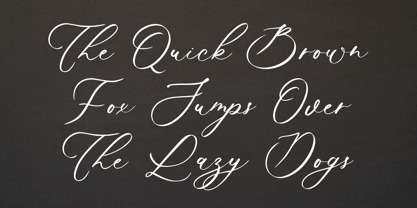 The Quick Brown
Fox Jumps Over
The Lazy Dogs